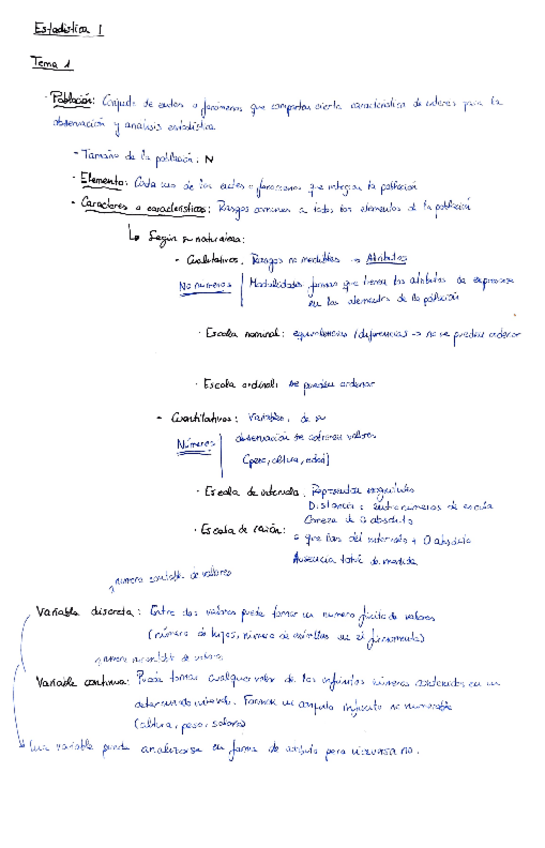 Estadística 1
Tema 1
· Población: Conjunto de entes o fenómenos que comparten cierta característica de interes para la
observación y analisis estadística
- Tamaño de la población: N
· Elemento: Cada uno de los entes o fenómenos que integran la población
· Caracteres o características: Rasgos comunes a todos los elementos de la población
↳ Según su naturaleza:
- Cualitativos. Rasgos no medibles → Atributos
No números | Modalidades formas que tienen los atributos de expresarse
en los elementos de la población
· Escala nominal: equivalencias / diferencias → no se pueden ordenar
· Escala ordinal: se pueden ordenar
- Cuantitativos: Variables, de su
Números | observación se obtienen valores
(peso, altura, edad)
· Escala de intervalo. Representan magnitudes
Distancia entre numeros de escala
Carece de 0 absoluto
· Escala de razón: = que las del intervalo + 0 absoluto
Ausencia total de medida
numero contable de valores
Variable discreta: Entre dos valores puede tomar un numero finito de valores
(número de hijos, número de estrellas en el firmamento)
numero no contable de valores
Variable continua: Puede tomar cualquier valor de los infinitos números contenidos en un
determinado intervalo. Forman un conjunto infinito no numerable
(altura, peso, salario)
Una variable puede analizarse en forma de atributo pero viceversa no.